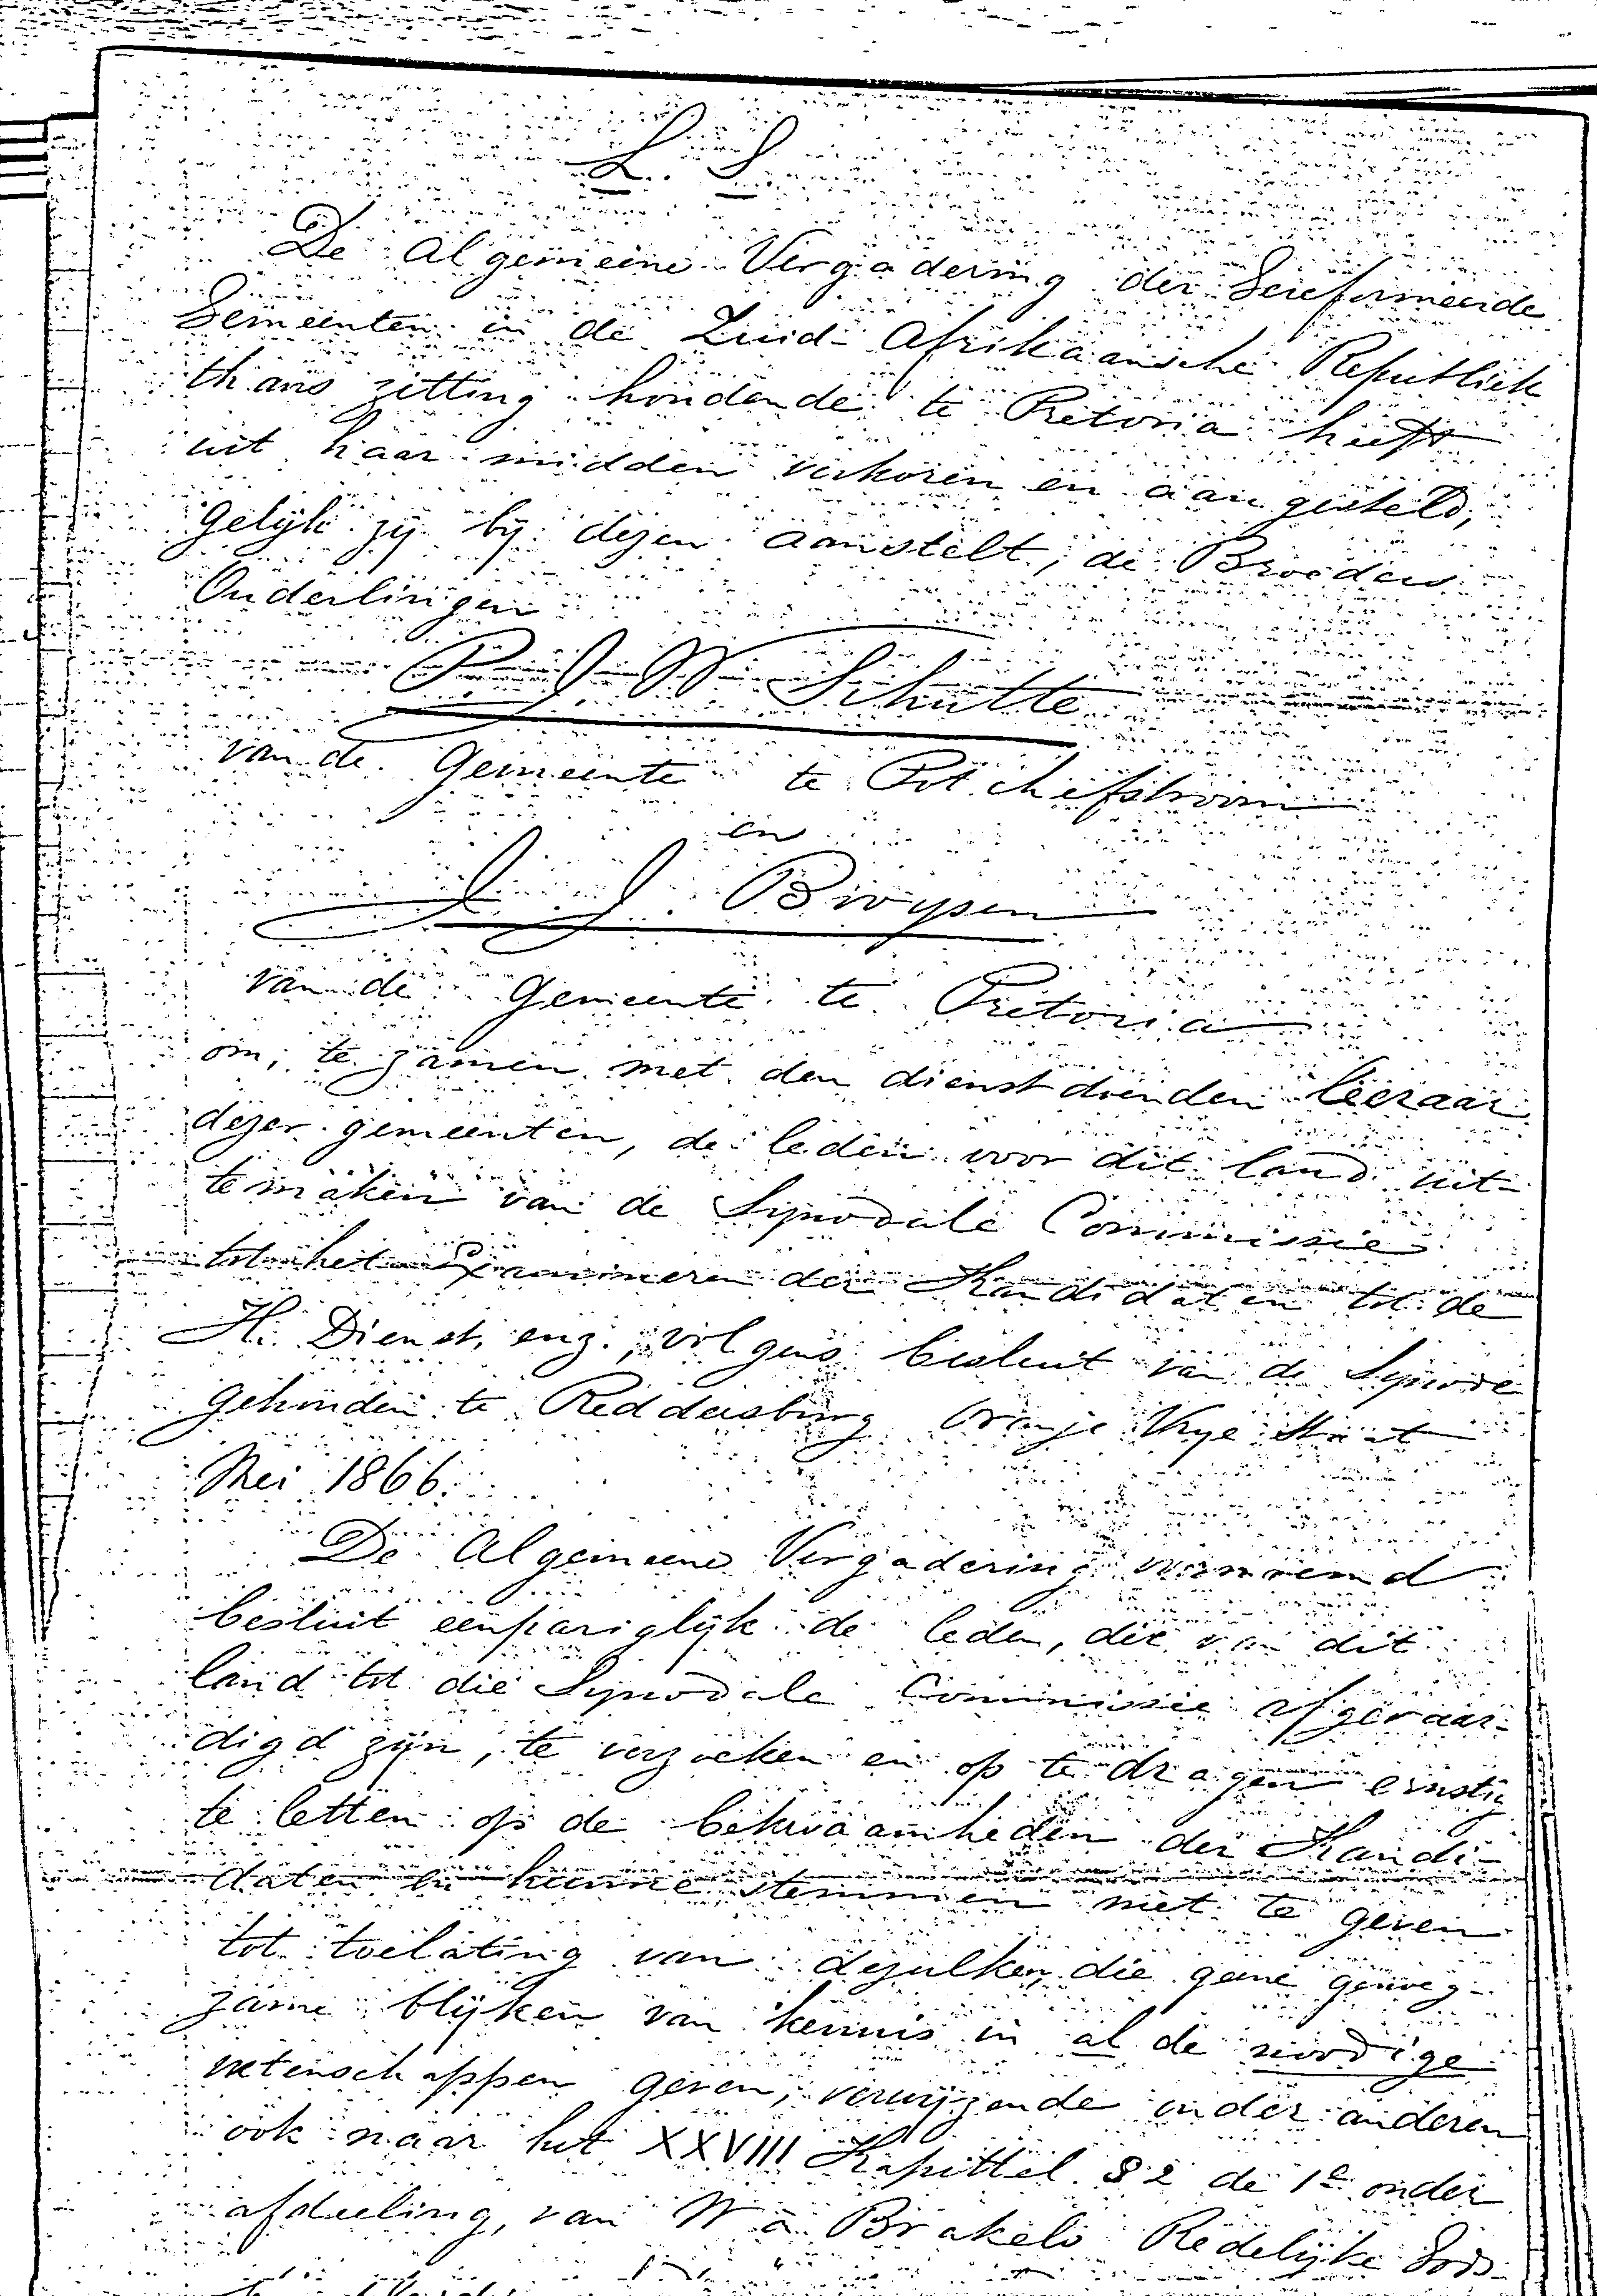 L. S.
De Algemeene Vergadering der Gereformeerde
Gemeenten in de Zuid-Afrikaansche Republiek
thans zitting houdende te Pretoria heeft
uit haar midden verkoren en aangesteld,
gelijk zij bij dezen aanstelt, de Broeders
Ouderlingen
P J W Schutte
van de Gemeente te Potchefstroom
en
J J Booysen
van de Gemeente te Pretoria
om, te zamen met den dienstdoenden leeraar
dezer gemeenten, de leden voor dit land uit-
temaken van de Synodale Commissie
tot het Examineren der Kandidaten tot de
H. Dienst, enz., volgens besluit van de Synode
gehouden te Reddersburg Oranje Vrye Staat
Mei 1866.
De Algemeene Vergadering
besluit eenpariglijk de leden, die van dit
land tot die Synodale Commissie afgevaar-
digd zijn, te verzoeken en op te dragen ernstig
te letten op de bekwaamheden der Kandi-
daten en hunne stemmen niet te geven
tot toelating van dezulken, die geene genoeg-
zame blijken van kennis in al de noodige
wetenschappen geven, verwijzende onder anderen
ook naar het XXVIII Kapittel § 2 de 1e onder
afdeeling, van W à Brakels Redelijke Gods